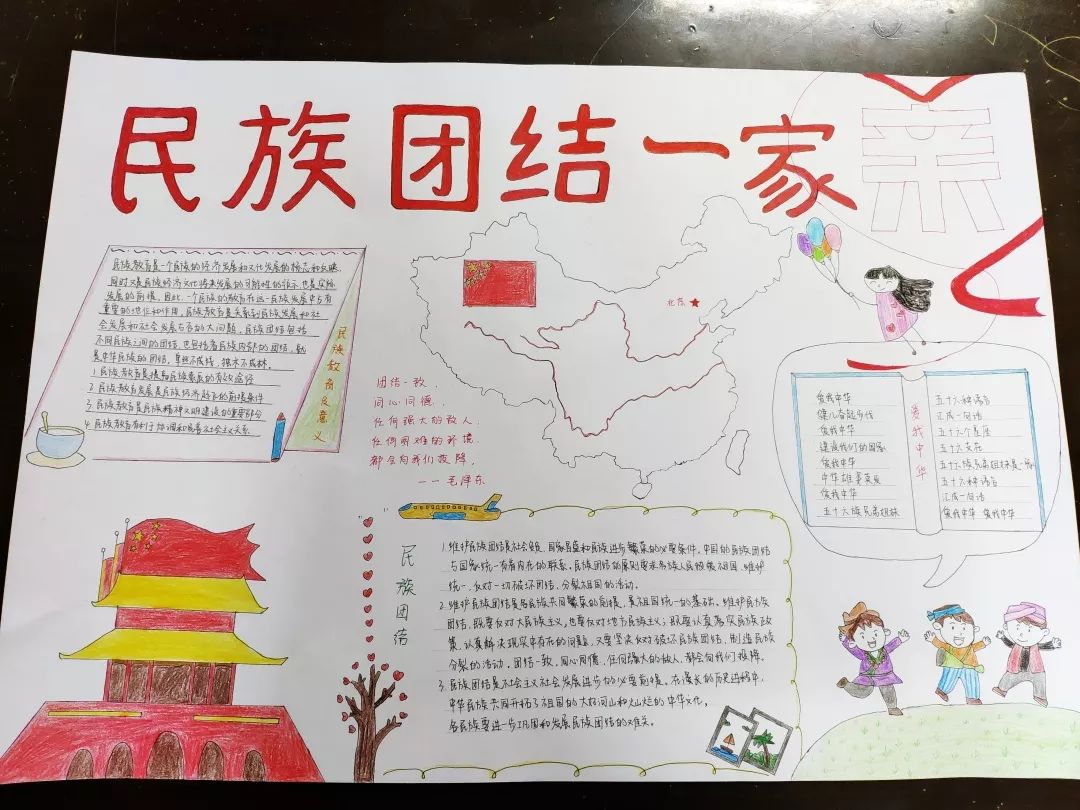 民族团结一家亲
民族教育是一个民族的经济发展和文化发展的标志和反映,
同时又是民族经济文化将来发展的可能性的预示,也是实际
发展的前提。因此,一个民族的教育在这一民族发展中占有
重要的地位和作用。民族教育是关系到民族发展和社
会发展和社会发展与否的大问题,民族团结包括
不同民族之间的团结,也包括着民族内部的团结,就
是中华民族的团结。单丝不成线,独木不成林。
1.民族教育是提高民族素质的有效途径
2.民族教育发展是民族经济起飞的前提条件
3.民族教育是民族精神文明建设的重要部分
4.民族教育有利于协调和完善社会主义关系
民族教育及意义
北京
团结一致,
同心同德,
任何强大的敌人,
任何困难的环境,
都会向我们投降。
——毛泽东
爱我中华
爱我中华
健儿奋起步伐
爱我中华
建设我们的国家
爱我中华
中华雄姿英发
爱我中华
五十六族兄弟姐妹
五十六种语言
汇成一句话
五十六个星座
五十六枝花
五十六族兄弟姐妹是一家
五十六种语言
汇成一句话
爱我中华 爱我中华
民族团结
1.维护民族团结是社会安定、国家昌盛和民族进步繁荣的必要条件。中国的民族团结
与国家统一有着内在的联系。民族团结的原则要求各族人民热爱祖国,维护
统一,反对一切破坏团结,分裂祖国的活动。
2.维护民族团结是各民族共同繁荣的前提,是祖国统一的基础。维护民族
团结,既要反对大民族主义,也要反对地方民族主义;既要认真落实民族政
策,认真解决现实中存在的问题,又要坚决反对破坏民族团结,制造民族
分裂的活动。团结一致,同心同德,任何强大的敌人,都会向我们投降。
3.民族团结是社会主义社会发展进步的必要前提。在漫长的历史进程中,
中华民族共同开拓了祖国的大好河山和灿烂的中华文化。
各民族要进一步巩固和发展民族团结的对象。